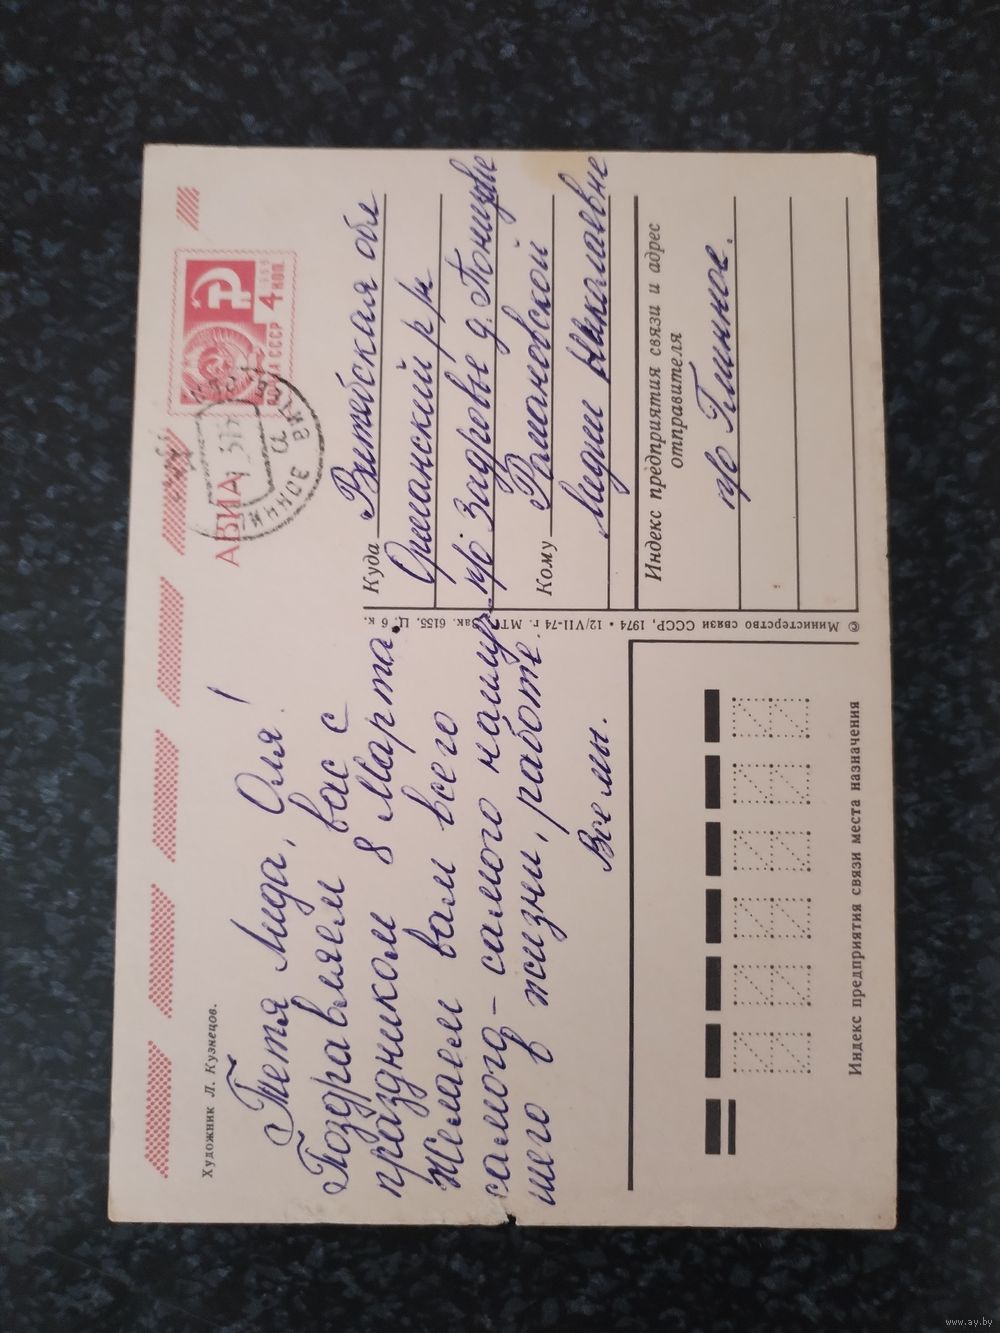 Художник Л. Кузнецов.
Тетя Лида, Оля!
Поздравляем вас с
праздником 8 Марта.
Желаем вам всего
самого – самого наилуч
шего в жизни, работе.
Все мы.
АВИА
ПОЧТА СССР
4 КОП.
Куда Витебская обл
Оршанский р/н
п/о Задровье д. Понизовье
Кому Романовской
Лидии Николаевне
Индекс предприятия связи и адрес
отправителя
п/о Глинное.
© Министерство связи СССР, 1974 • 12/VII-74 г. МТ Зак. 6155. Ц. 6 к.
Индекс предприятия связи места назначения
www.ay.by